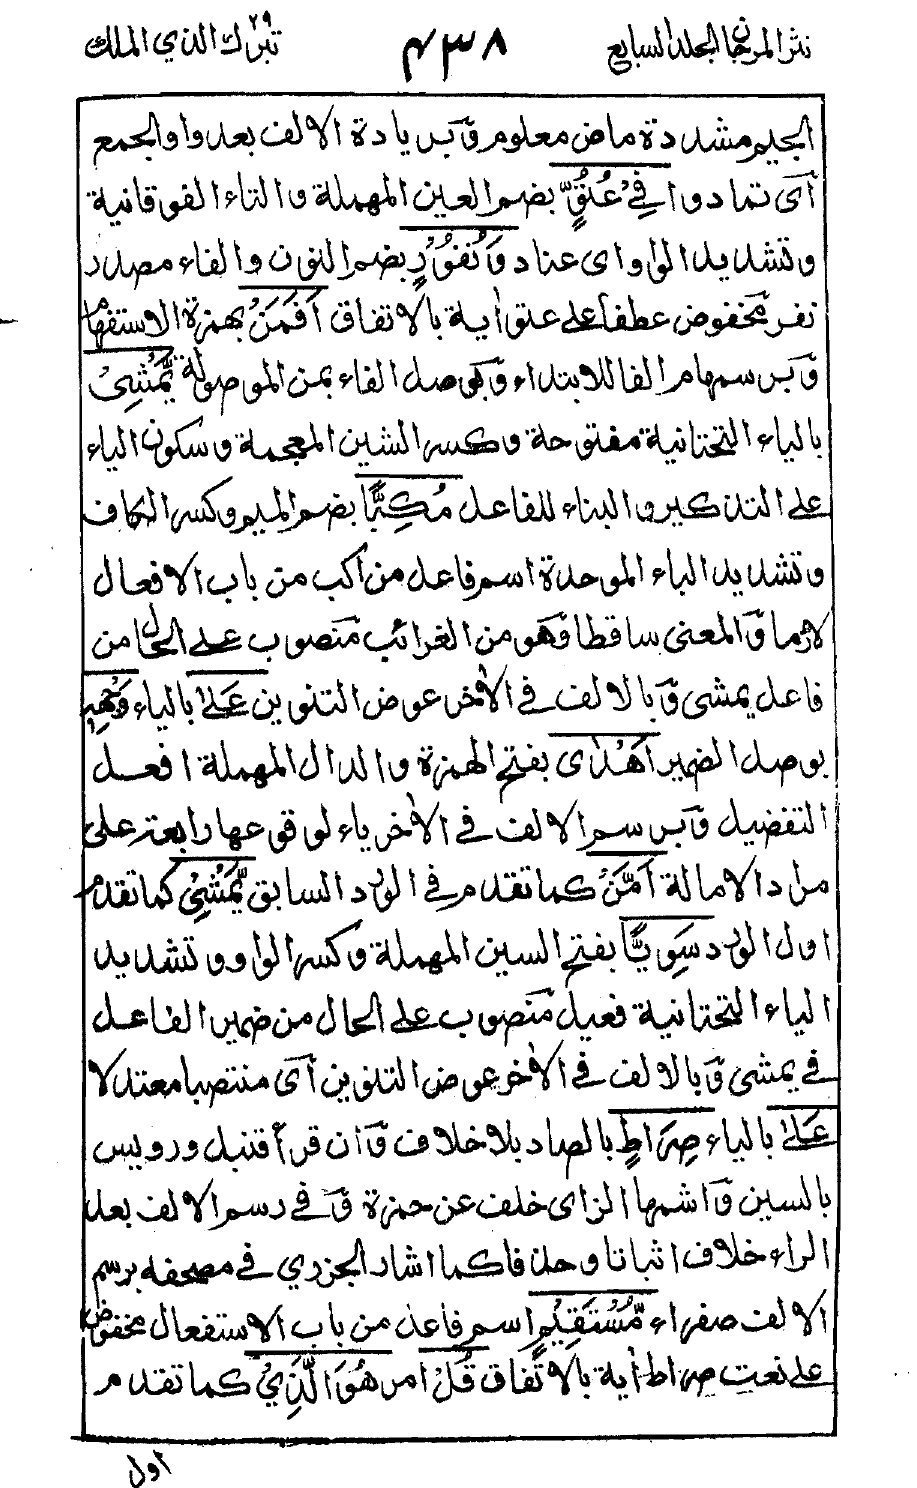 نثر المرجان المجلد السابع ٤٣٨ تبرك الذي ٢٩ الملك
الجيم مشددة ماض معلوم وبزيادة الالف بعد واو الجمع
آى تمادوا فِيْ عُتُوٍّ بضم العين المهملة والتاء الفوقانية
وتشديد الواو اى عناد وَّنُفُوْرٍ بضم النون والفاء مصدر
نفر مخفوض عطفا على عتو أية بالاتفاق اَفَمَنْ بهمزة الاستفهام
وبرسمها الفا للابتداء وبوصل الفاء بمن الموصولة يَّمْشِىْ
بالياء التحتانية مفتوحة وكسر الشين المعجمة وسكون الياء
على التذكير والبناء للفاعل مُكِبًّا بضم الميم وكسر الكاف
وتشديد الباء الموحدة اسم فاعل من أكب من باب الافعال
لازما والمعنى ساقطا وهو من الغرائب منصوب على الحال من
فاعل يمشى وبالالف في الأخر عوض التنوين عَلىٰ بالياء وَجْهِهٖ
بوصل الضمير اَهْدٰى بفتح الهمزة والدال المهملة افعل
التفضيل وبرسم الالف في الأخر ياء لوقوعها رابعة على
مراد الامالة اَمَّنْ كما تقدم في الورد السابق يَّمْشِىْ كما تقدم
اول الورد سَوِيًّا بفتح السين المهملة وكسر الواو وتشديد
الياء التحتانية فعيل منصوب على الحال من ضمير الفاعل
في يمشى وبالالف في الأخر عوض التنوين آى منتصبا معتدلا
عَلىٰ بالياء صِرَاطٍ بالصاد بلا خلاف وان قرأ قنبل ورويس
بالسين واشمها الزاى خلف عن حمزة وفي رسم الالف بعد
الراء خلاف اثباتا وحذفا كما اشار الجزري في مصحفه برسم
الالف صفراء مُّسْتَقِيْمٍ اسم فاعل من باب الاستفعال مخفوض
على نعت صراط أية بالاتفاق قُلْ امر هُوَ الَّذِيْ كما تقدم
اول